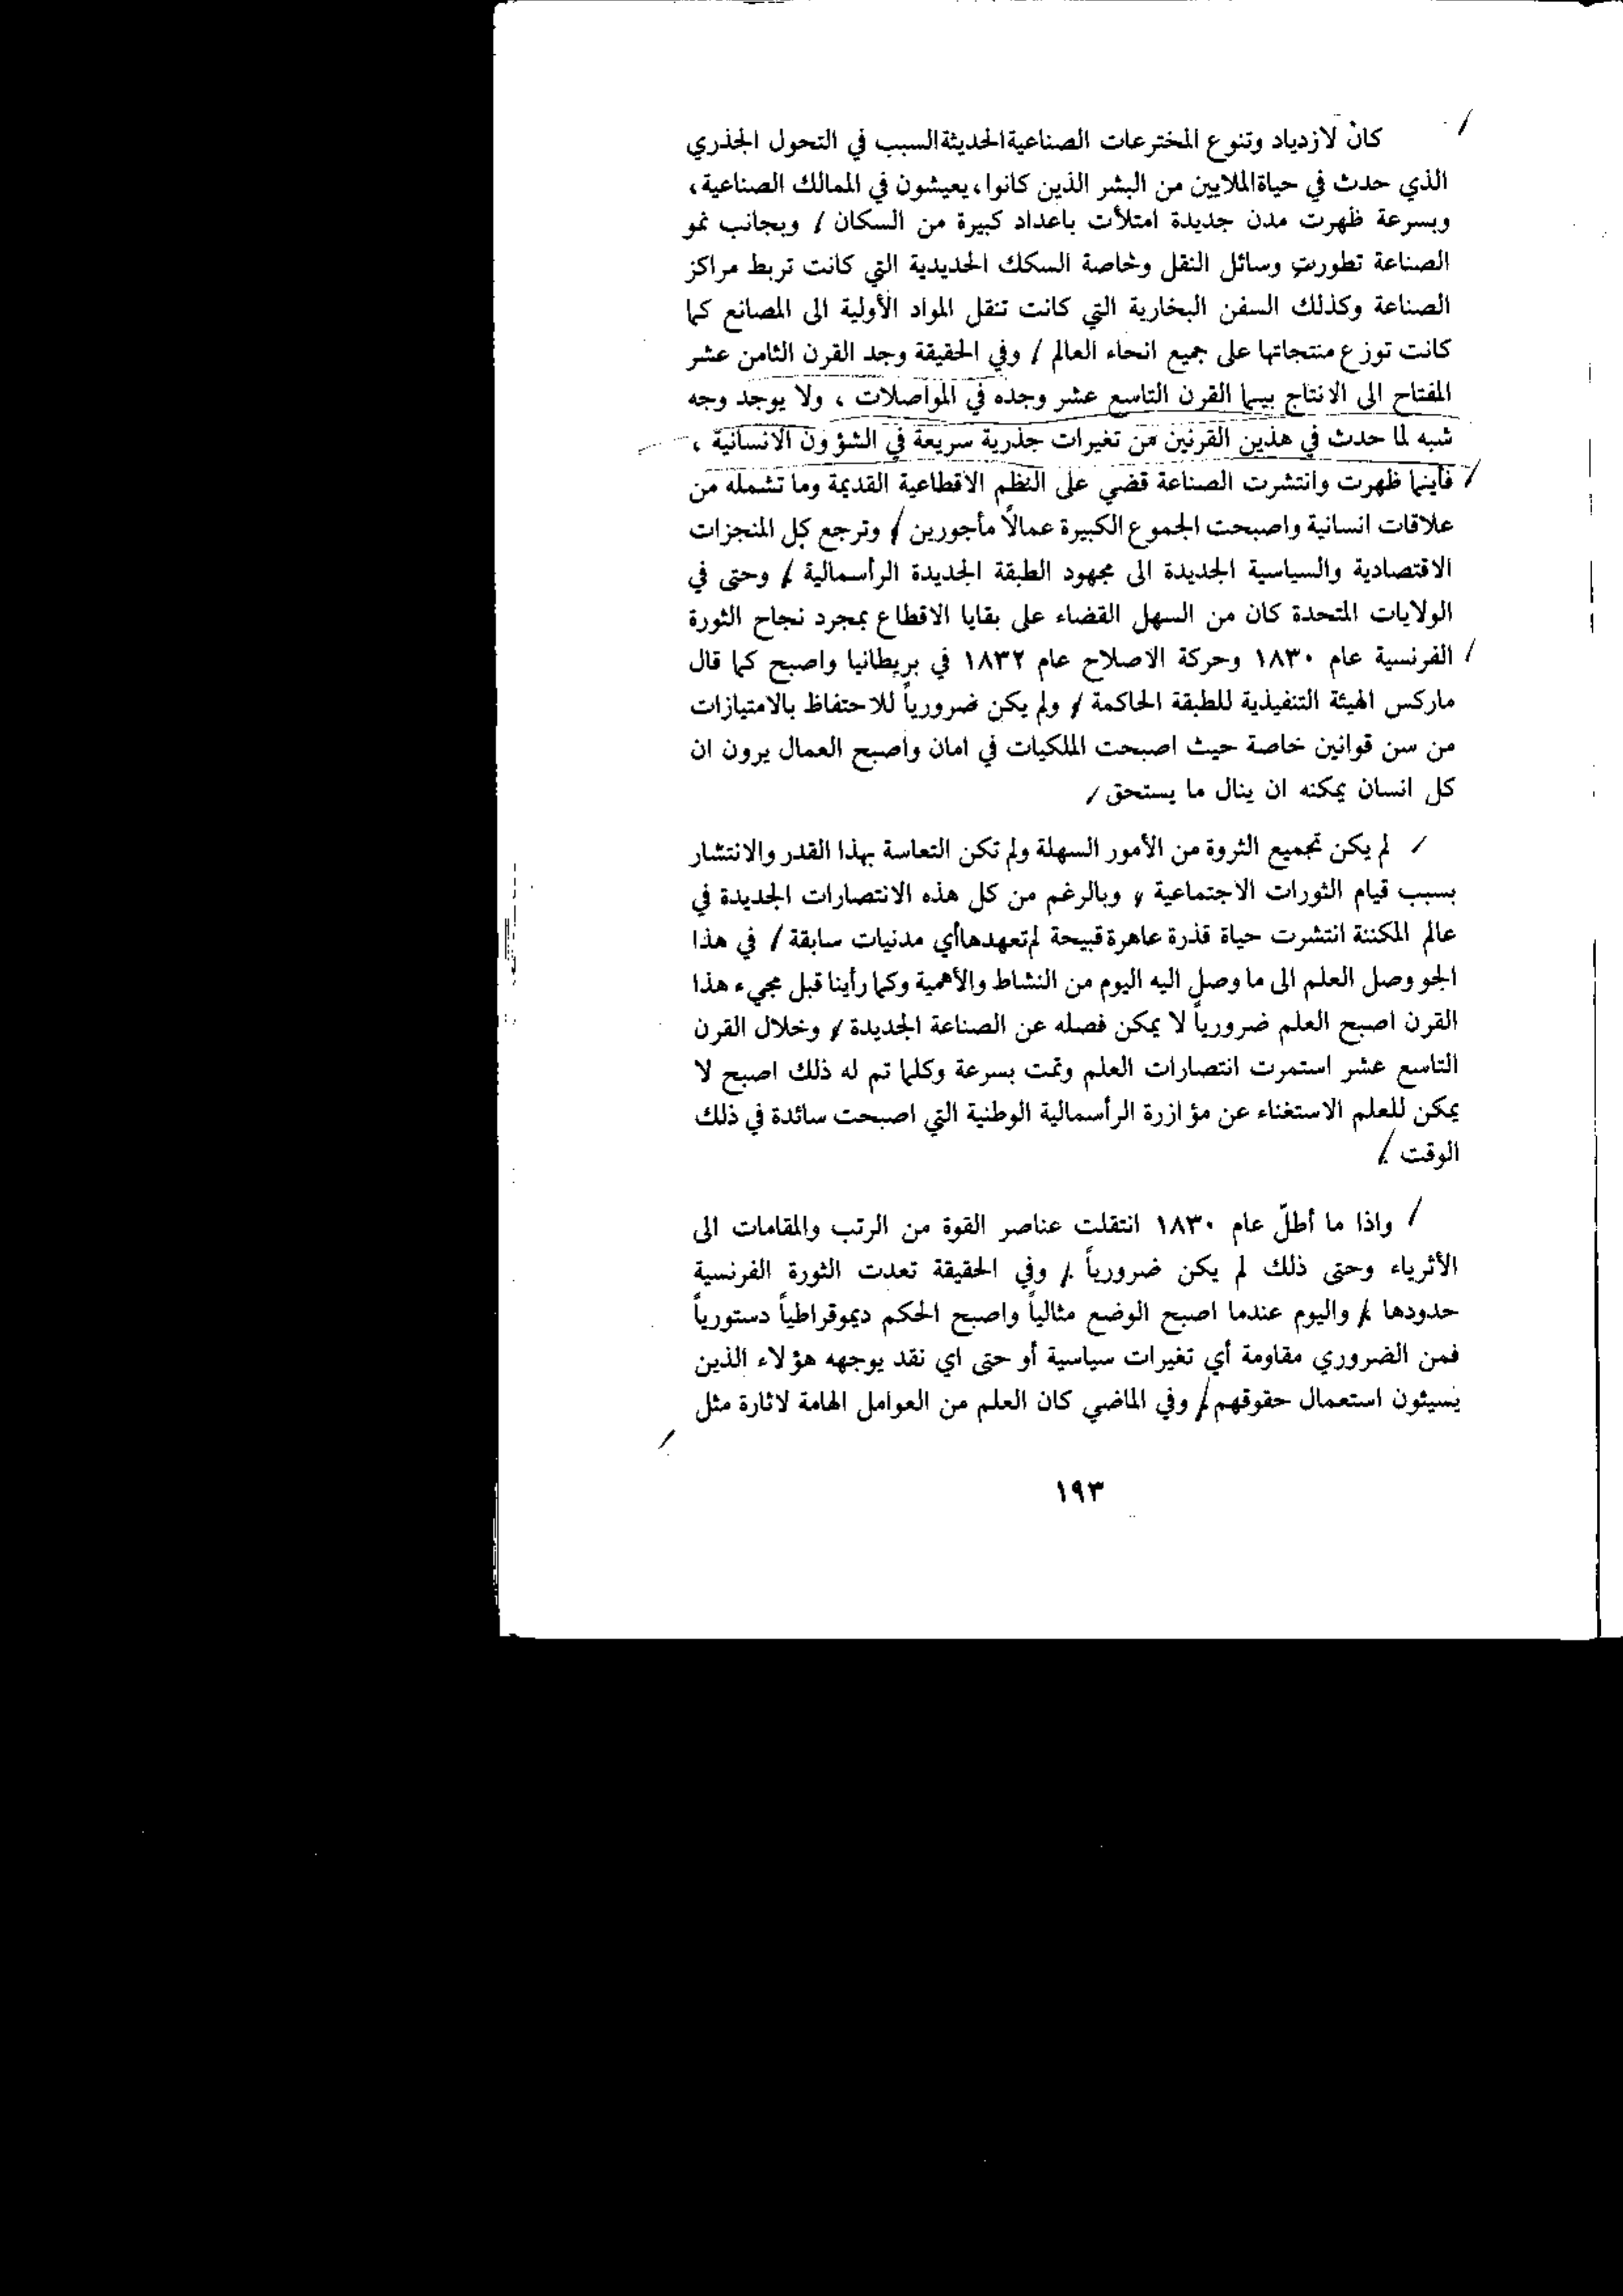 كان لازدياد وتنوع المخترعات الصناعية الحديثة السبب في التحول الجذري
الذي حدث في حياة الملايين من البشر الذين كانوا، يعيشون في الممالك الصناعية،
وبسرعة ظهرت مدن جديدة امتلأت باعداد كبيرة من السكان / وبجانب نمو
الصناعة تطورت وسائل النقل وخاصة السكك الحديدية التي كانت تربط مراكز
الصناعة وكذلك السفن البخارية التي كانت تنقل المواد الأولية الى المصانع كما
كانت توزع منتجاتها على جميع انحاء العالم / وفي الحقيقة وجد القرن الثامن عشر
المفتاح الى الانتاج بينما القرن التاسع عشر وجده في المواصلات ، ولا يوجد وجه
شبه لما حدث في هذين القرنين من تغيرات جذرية سريعة في الشؤون الانسانية ،
/ فأينما ظهرت وانتشرت الصناعة قضي على النظم الاقطاعية القديمة وما تشمله من
علاقات انسانية واصبحت الجموع الكبيرة عمالاً مأجورين / وترجع كل المنجزات
الاقتصادية والسياسية الجديدة الى مجهود الطبقة الجديدة الرأسمالية / وحتى في
الولايات المتحدة كان من السهل القضاء على بقايا الاقطاع بمجرد نجاح الثورة
/ الفرنسية عام ١٨٣٠ وحركة الاصلاح عام ١٨٣٢ في بريطانيا واصبح كما قال
ماركس الهيئة التنفيذية للطبقة الحاكمة / ولم يكن ضرورياً للاحتفاظ بالامتيازات
من سن قوانين خاصة حيث اصبحت الملكيات في امان واصبح العمال يرون ان
كل انسان يمكنه ان ينال ما يستحق /
/ لم يكن تجميع الثروة من الأمور السهلة ولم تكن التعاسة بهذا القدر والانتشار
بسبب قيام الثورات الاجتماعية ، وبالرغم من كل هذه الانتصارات الجديدة في
عالم المكننة انتشرت حياة قذرة عاهرة قبيحة لم تعهدها أي مدنيات سابقة / في هذا
الجو وصل العلم الى ما وصل اليه اليوم من النشاط والأهمية وكما رأينا قبل مجيء هذا
القرن اصبح العلم ضرورياً لا يمكن فصله عن الصناعة الجديدة / وخلال القرن
التاسع عشر استمرت انتصارات العلم ونمت بسرعة وكلما تم له ذلك اصبح لا
يمكن للعلم الاستغناء عن مؤازرة الرأسمالية الوطنية التي اصبحت سائدة في ذلك
الوقت /
/ واذا ما أطلّ عام ١٨٣٠ انتقلت عناصر القوة من الرتب والمقامات الى
الأثرياء وحتى ذلك لم يكن ضرورياً / وفي الحقيقة تعدت الثورة الفرنسية
حدودها / واليوم عندما اصبح الوضع مثالياً واصبح الحكم ديموقراطياً دستورياً
فمن الضروري مقاومة أي تغيرات سياسية أو حتى اي نقد يوجهه هؤلاء الذين
يسيئون استعمال حقوقهم / وفي الماضي كان العلم من العوامل الهامة لاثارة مثل
١٩٣